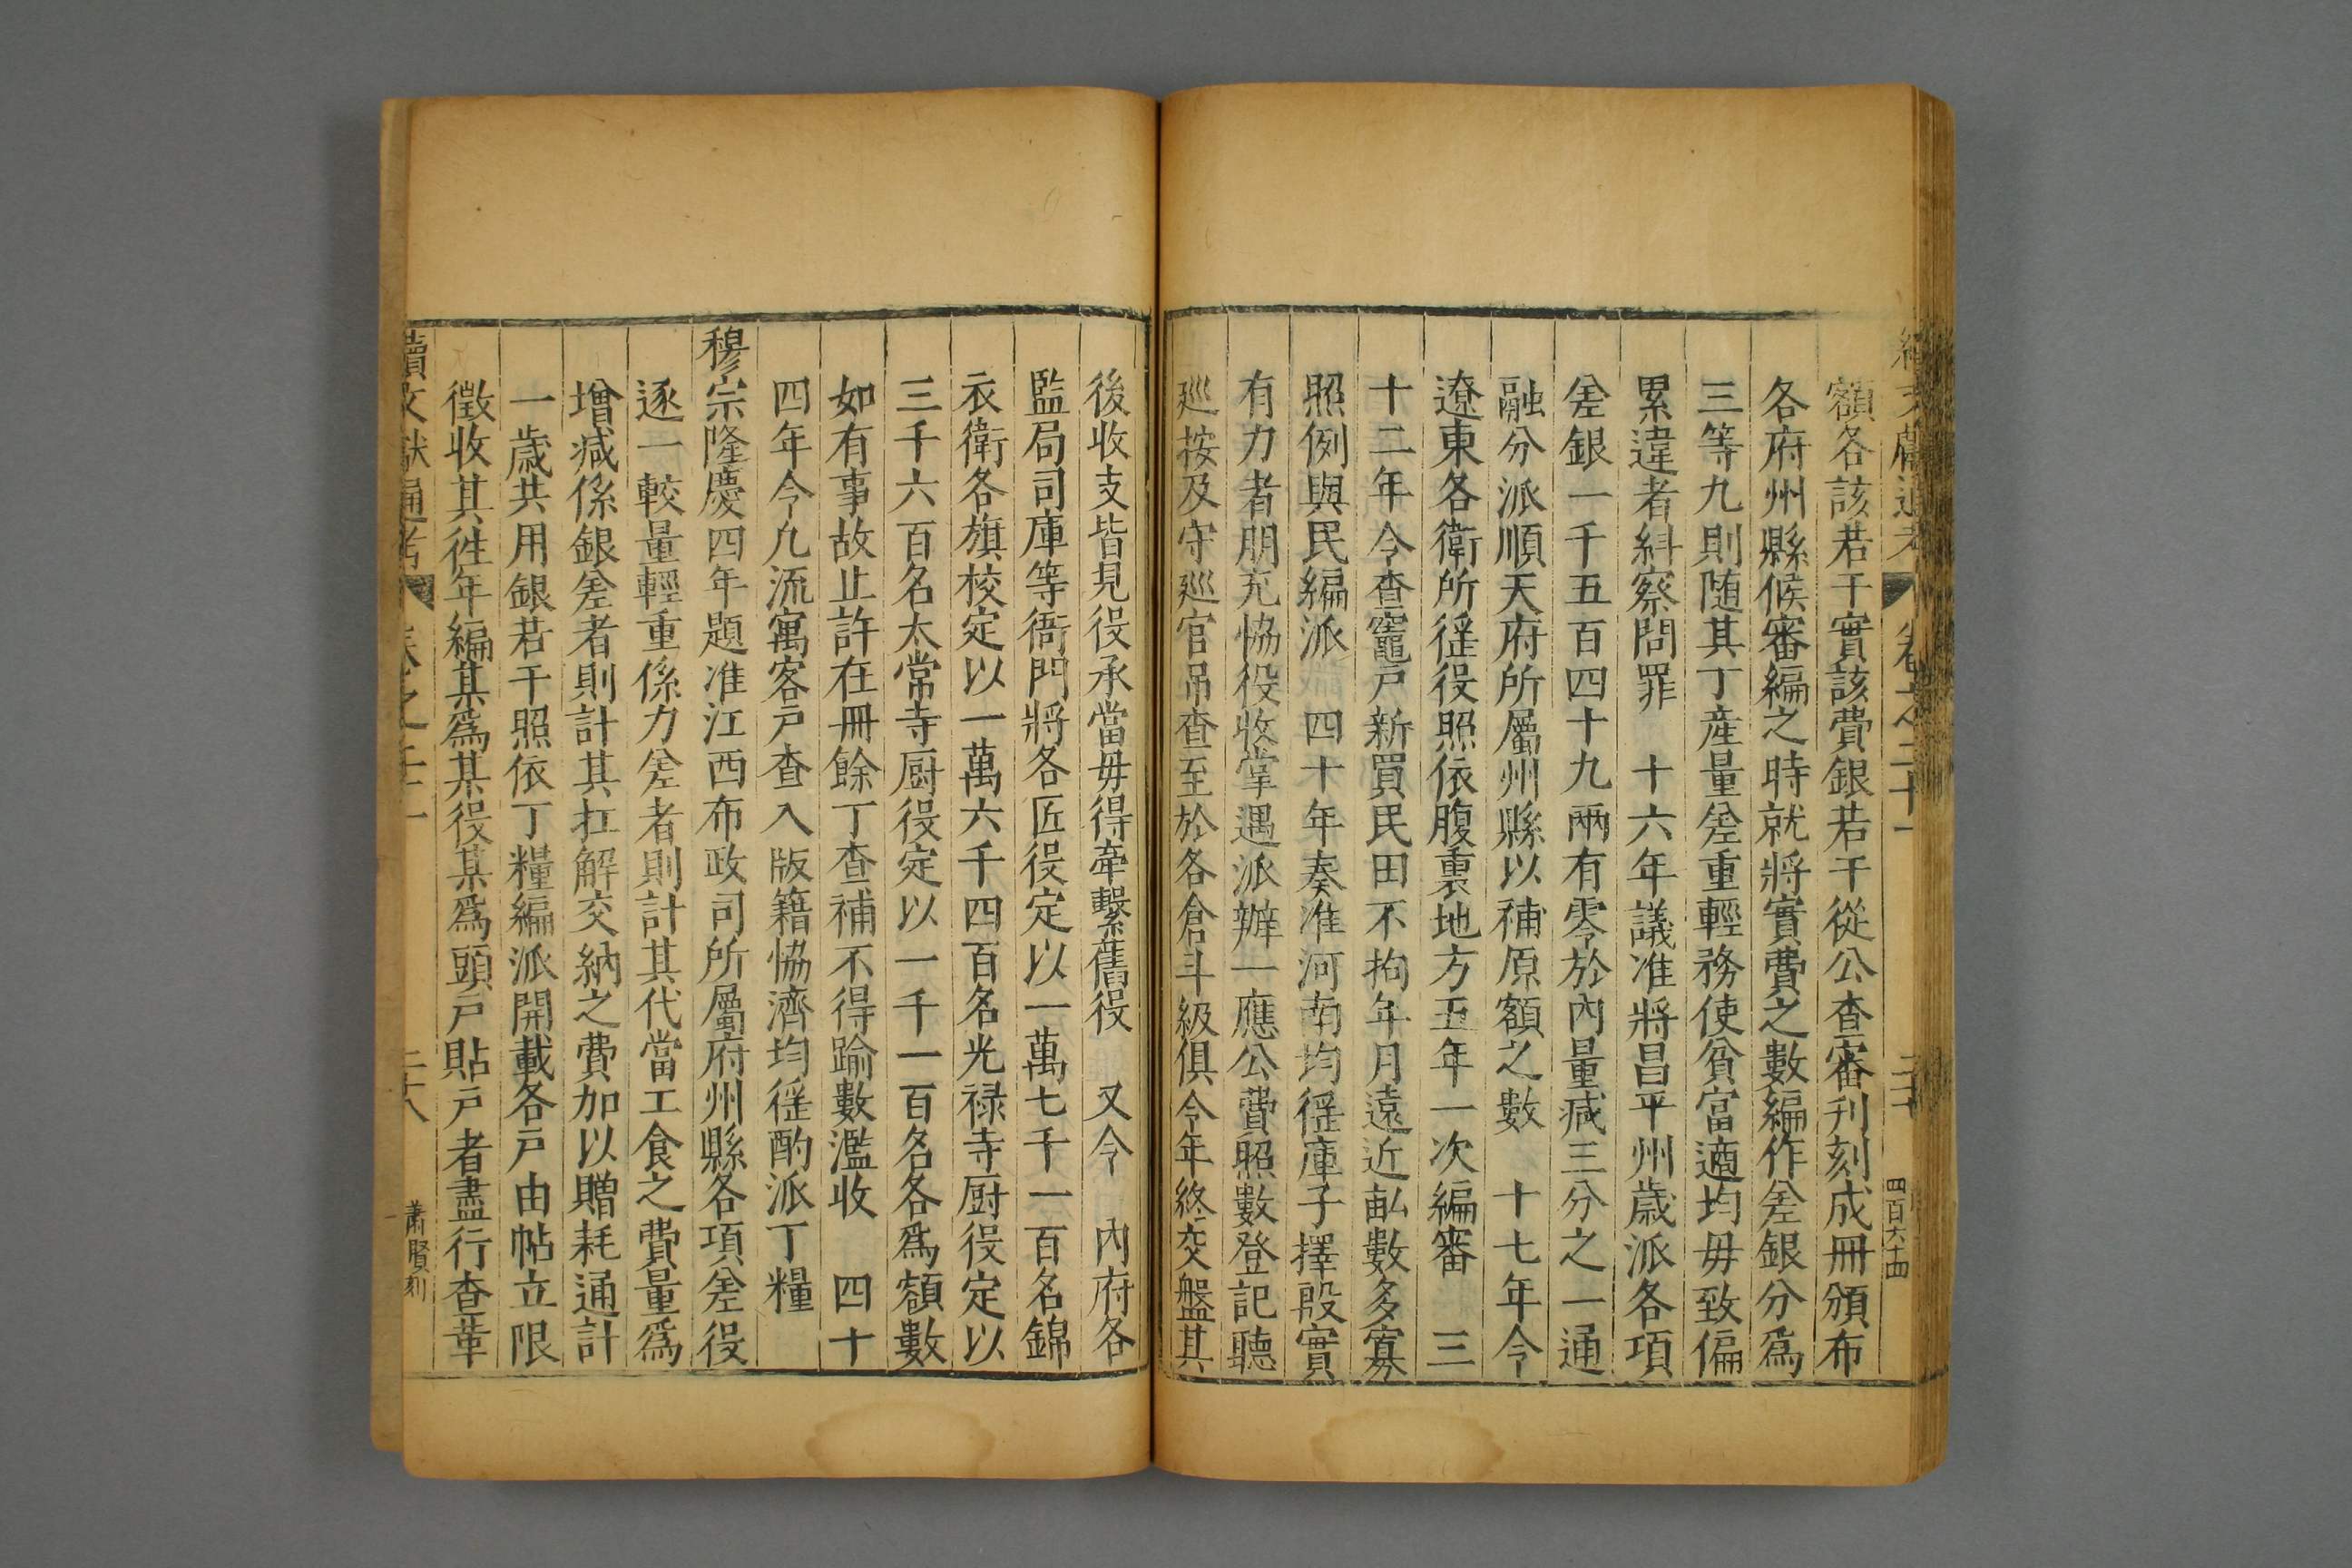 額各該若干實該費銀若干從公查審刋刻成冊頒布
各府州縣候審編之時就將實費之數編作差銀分爲
三等九則随其丁産量差重輕務使貧富適均毋致偏
累違者糾察問罪　十六年議准將昌平州歲派各項
差銀一千五百四十九兩有零於内量減三分之一通
融分派順天府所屬州縣以補原額之數　十七年令
遼東各衛所徭役照依腹裏地方五年一次編審　三
十二年令查竈戸新買民田不拘年月遠近畝數多寡
照例與民編派　四十年奏准河南均徭庫子擇殷實
有力者朋充恊役收掌遇派辦一應公費照數登記聽
廵按及守廵官吊查至於各倉斗級俱令年終交盤其
後收支皆見役承當毋得牽繫舊役　又令　内府各
監局司庫等衙門將各匠役定以一萬七千一百名錦
衣衛各旗校定以一萬六千四百名光禄寺厨役定以
三千六百名太常寺厨役定以一千一百名各爲額數
如有事故止許在冊餘丁查補不得踰數濫收　四十
四年令凡流寓客戸查入版籍恊濟均徭酌派丁糧
穆宗隆慶四年題准江西布政司所屬府州縣各項差役
逐一較量輕重係力差者則計其代當工食之費量爲
增減係銀差者則計其扛解交納之費加以贈耗通計
一歲共用銀若干照依丁糧編派開載各戸由帖立限
徵收其徃年編某爲某役某爲頭戸貼戸者盡行查革
續文獻通考　卷之二十一　四百六十四
續文獻通考　卷之二十一　二十八　蕭賢刻